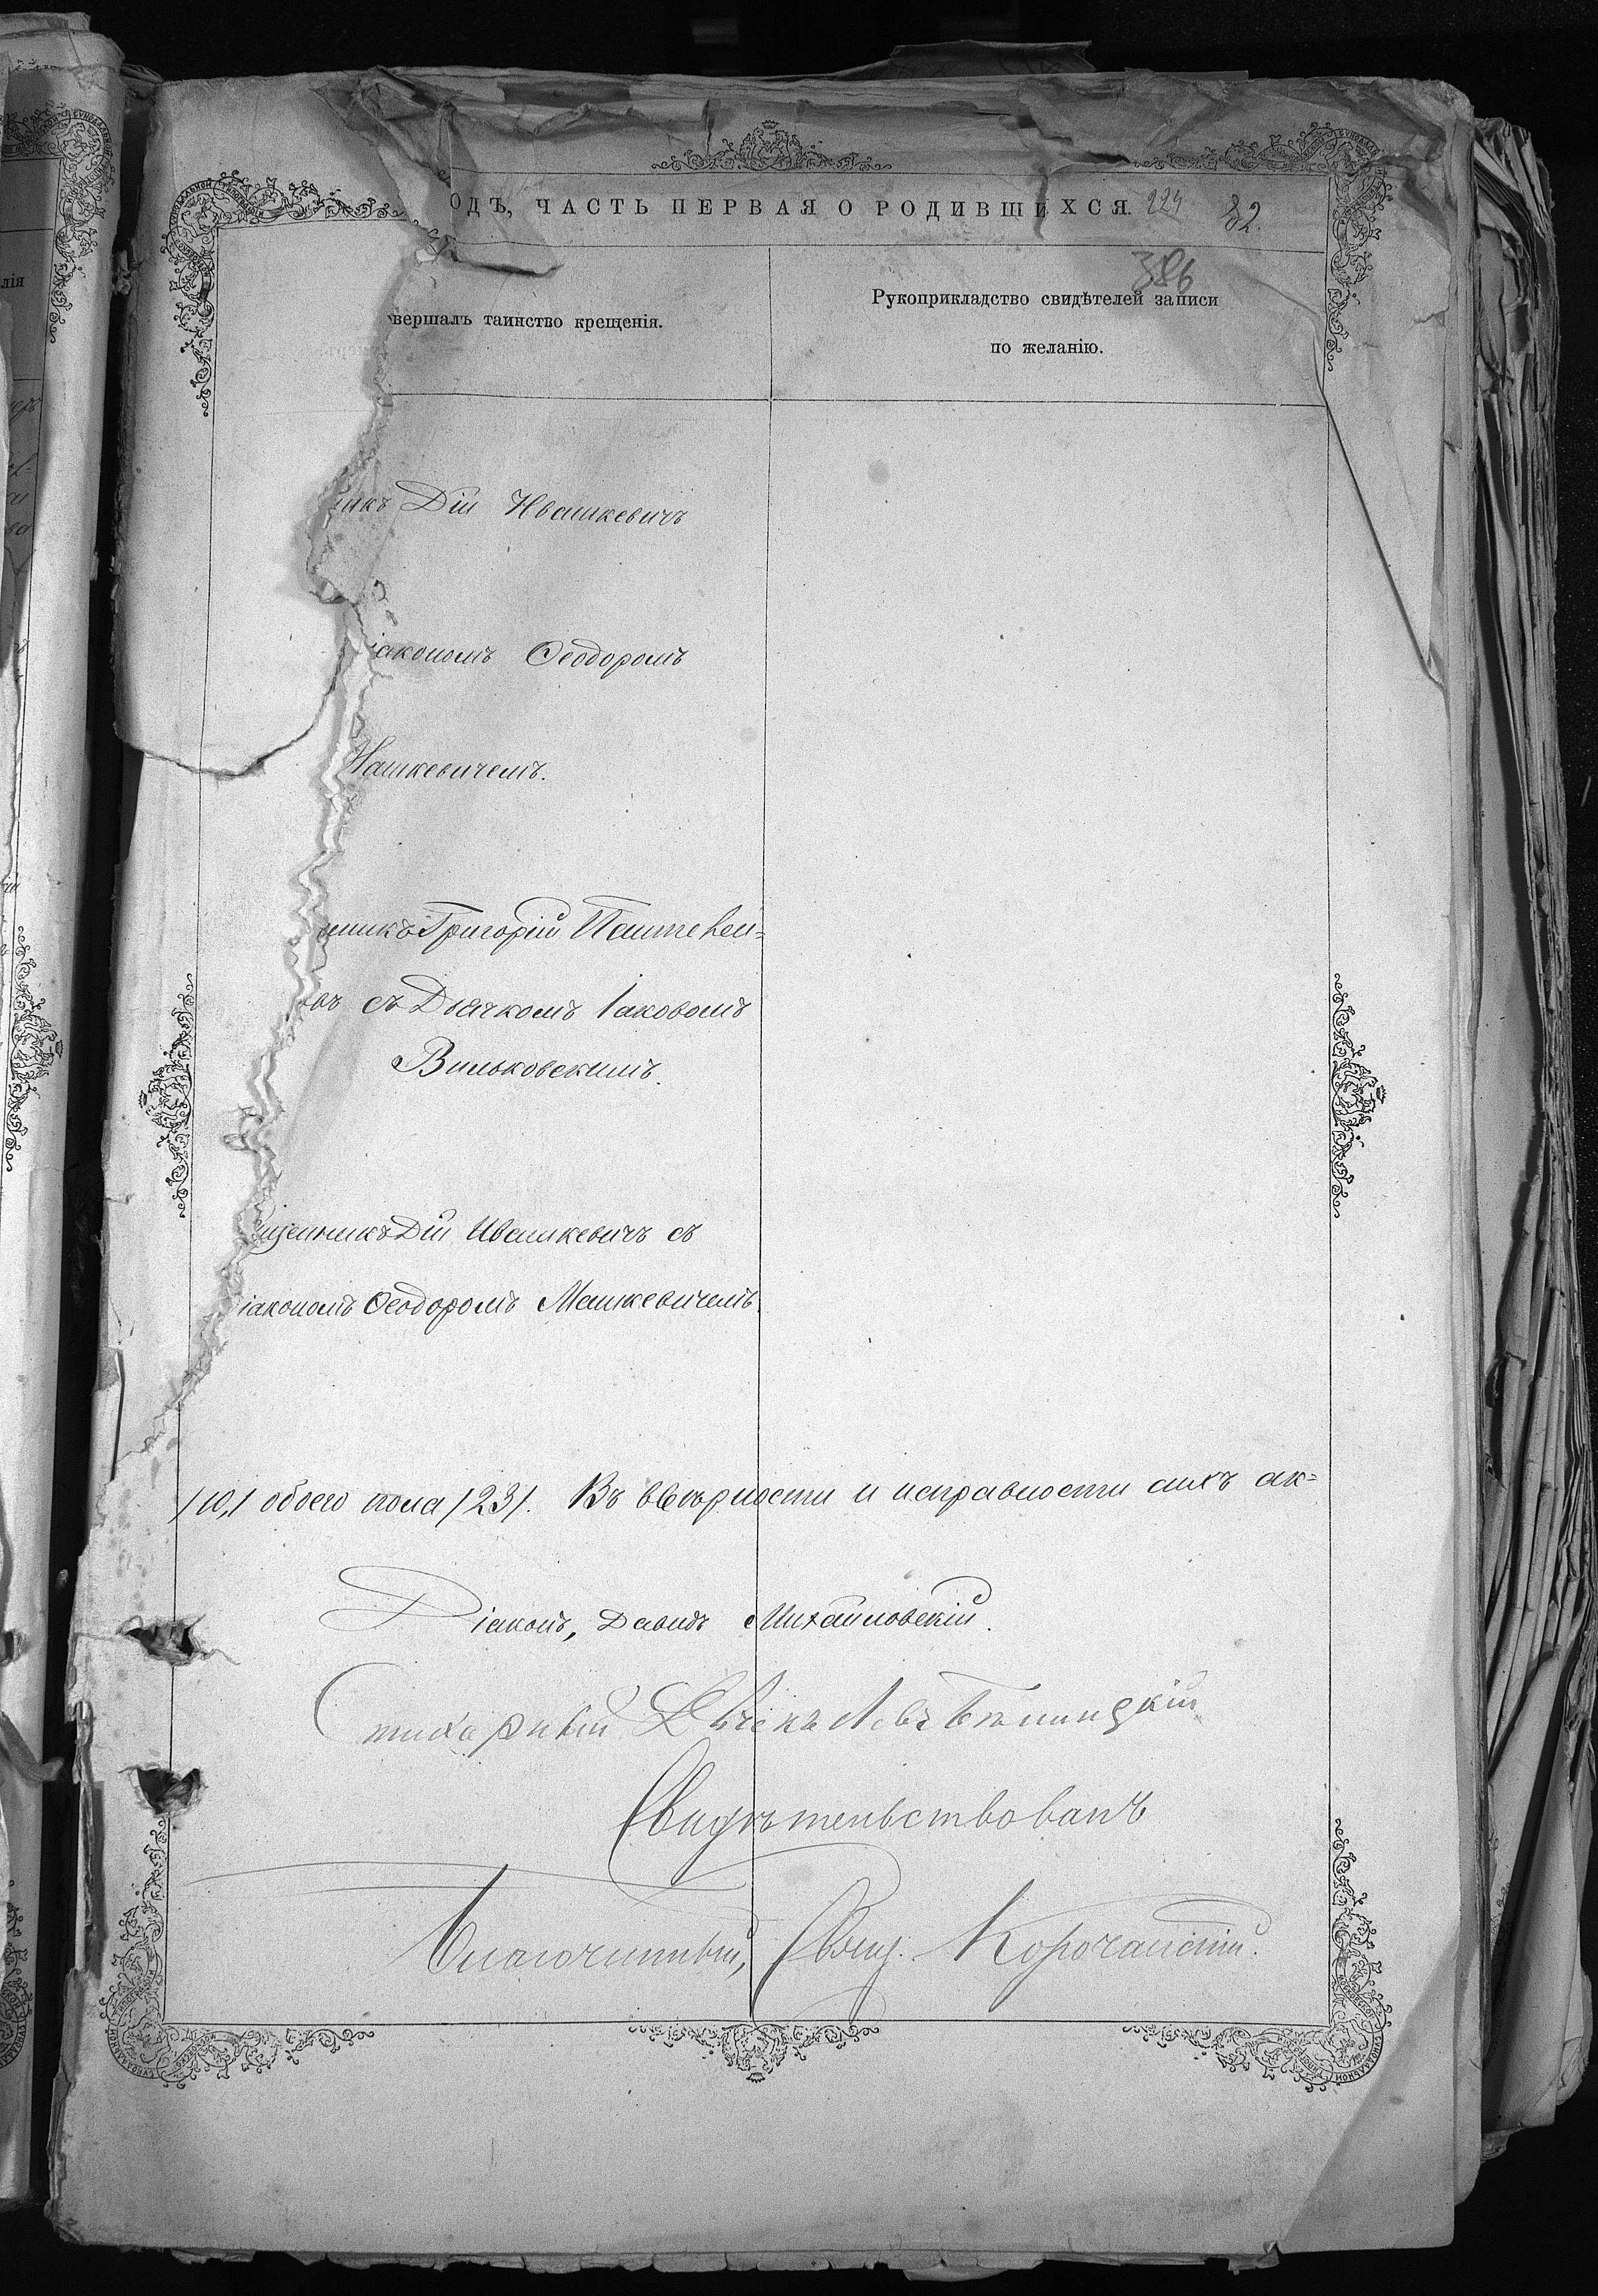 одъ, ЧАСТЬ ПЕРВАЯ О РОДИВШИХСЯ. 224 82.
386
вершалъ таинство крещенія.
Рукоприкладство свидѣтелей записи
по желанію.
никъ Дій Ивашкевичъ
іакономъ Ѳеодоромъ
Машкевичемъ.
енникъ Григорій
въ съ Дьячкомъ Іаковомъ
Вильковскимъ.
щенникъ Дій Ивашкевичъ съ
іакономъ Ѳеодоромъ Машкевичемъ.
/10,/ обоего пола /23/. Въ вѣрности и исправности сихъ ак=
Діаконъ, Давидъ Михайловскій.
Стихарный Дьячекъ Левъ
Свидѣтельствовалъ
Благочинный, Свящ. Корочанскій.